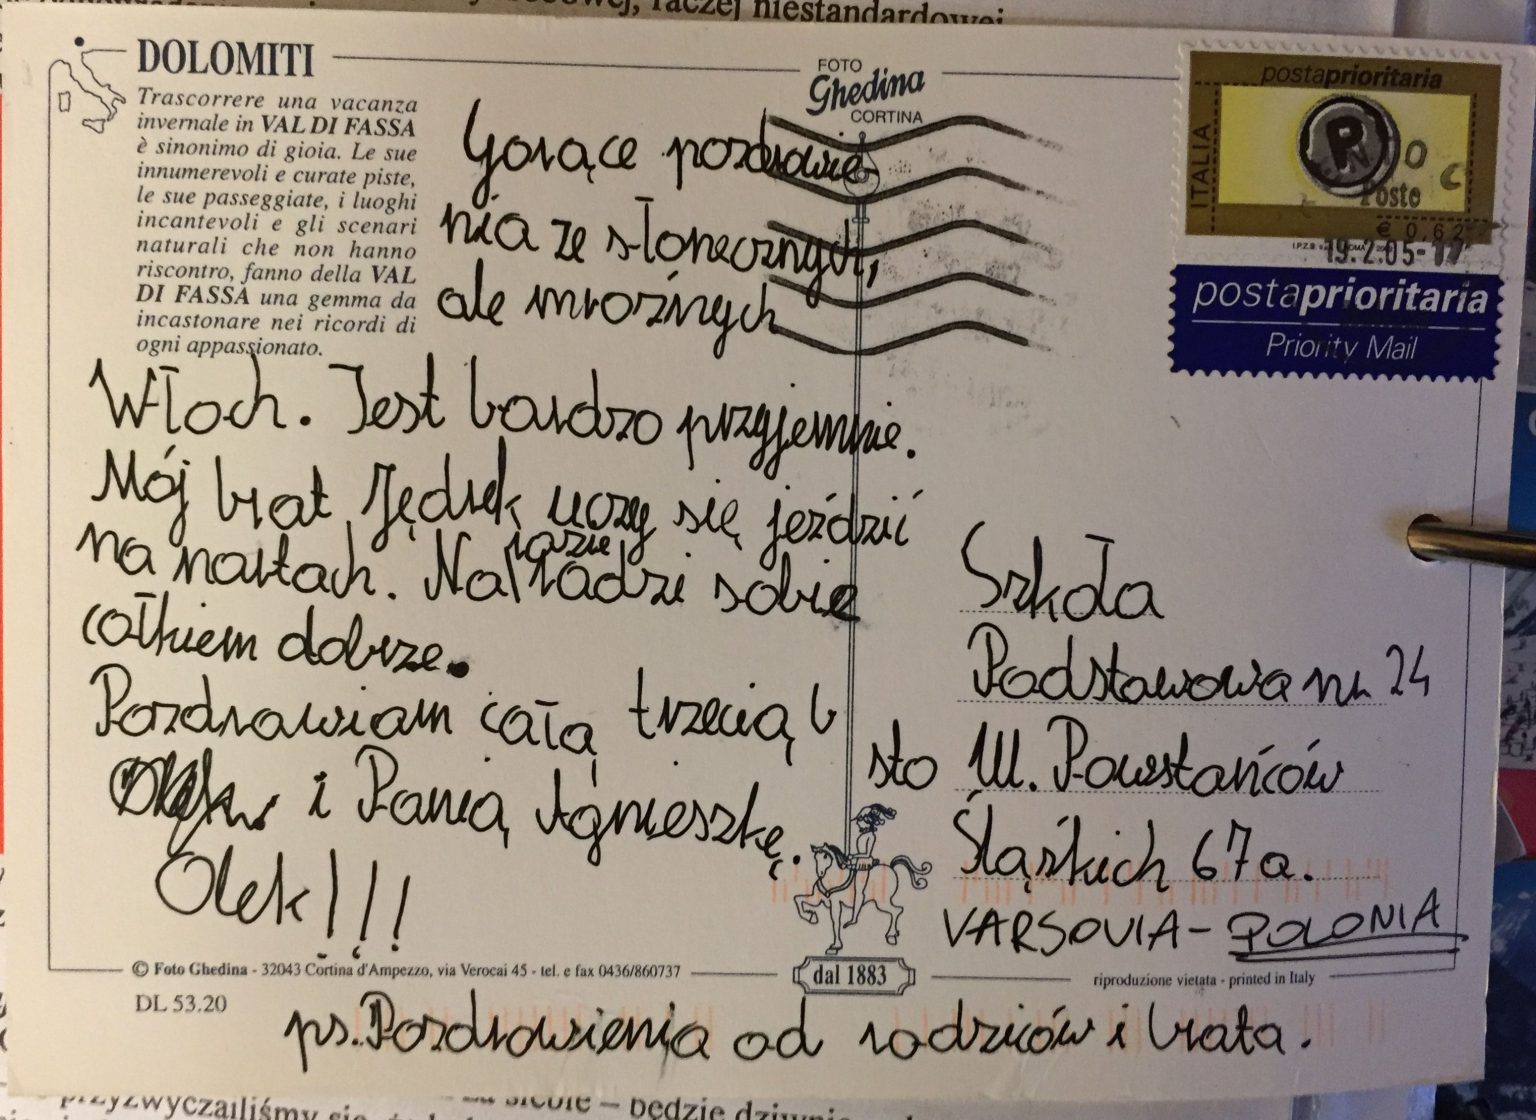 DOLOMITI
Trascorrere una vacanza
invernale in VAL DI FASSA
è sinonimo di gioia. Le sue
innumerevoli e curate piste,
le sue passeggiate, i luoghi
incantevoli e gli scenari
naturali che non hanno
riscontro, fanno della VAL
DI FASSA una gemma da
incastonare nei ricordi di
ogni appassionato.
FOTO
Ghedina
CORTINA
Gorące pozdrowie-
nia ze słonecznych,
ale mroźnych
Włoch. Jest bardzo przyjemnie.
Mój brat Jędrek uczy się jeździć
na nartach. Na razie radzi sobie
całkiem dobrze.
Pozdrawiam całą trzecią b
i Panią Agnieszkę.
Olek!!!
postaprioritaria
ITALIA
P
Poste
€ 0,62
19.2.05-17
postaprioritaria
Priority Mail
Szkoła
Podstawowa nr 24
sto Ul. Powstańców
Śląskich 67a.
VARSOVIA - POLONIA
© Foto Ghedina - 32043 Cortina d'Ampezzo, via Verocai 45 - tel. e fax 0436/860737
dal 1883
riproduzione vietata - printed in Italy
DL 53.20
ps. Pozdrowienia od rodziców i brata.
raczej niestandardowej
przyzwyczailiśmy się
będzie